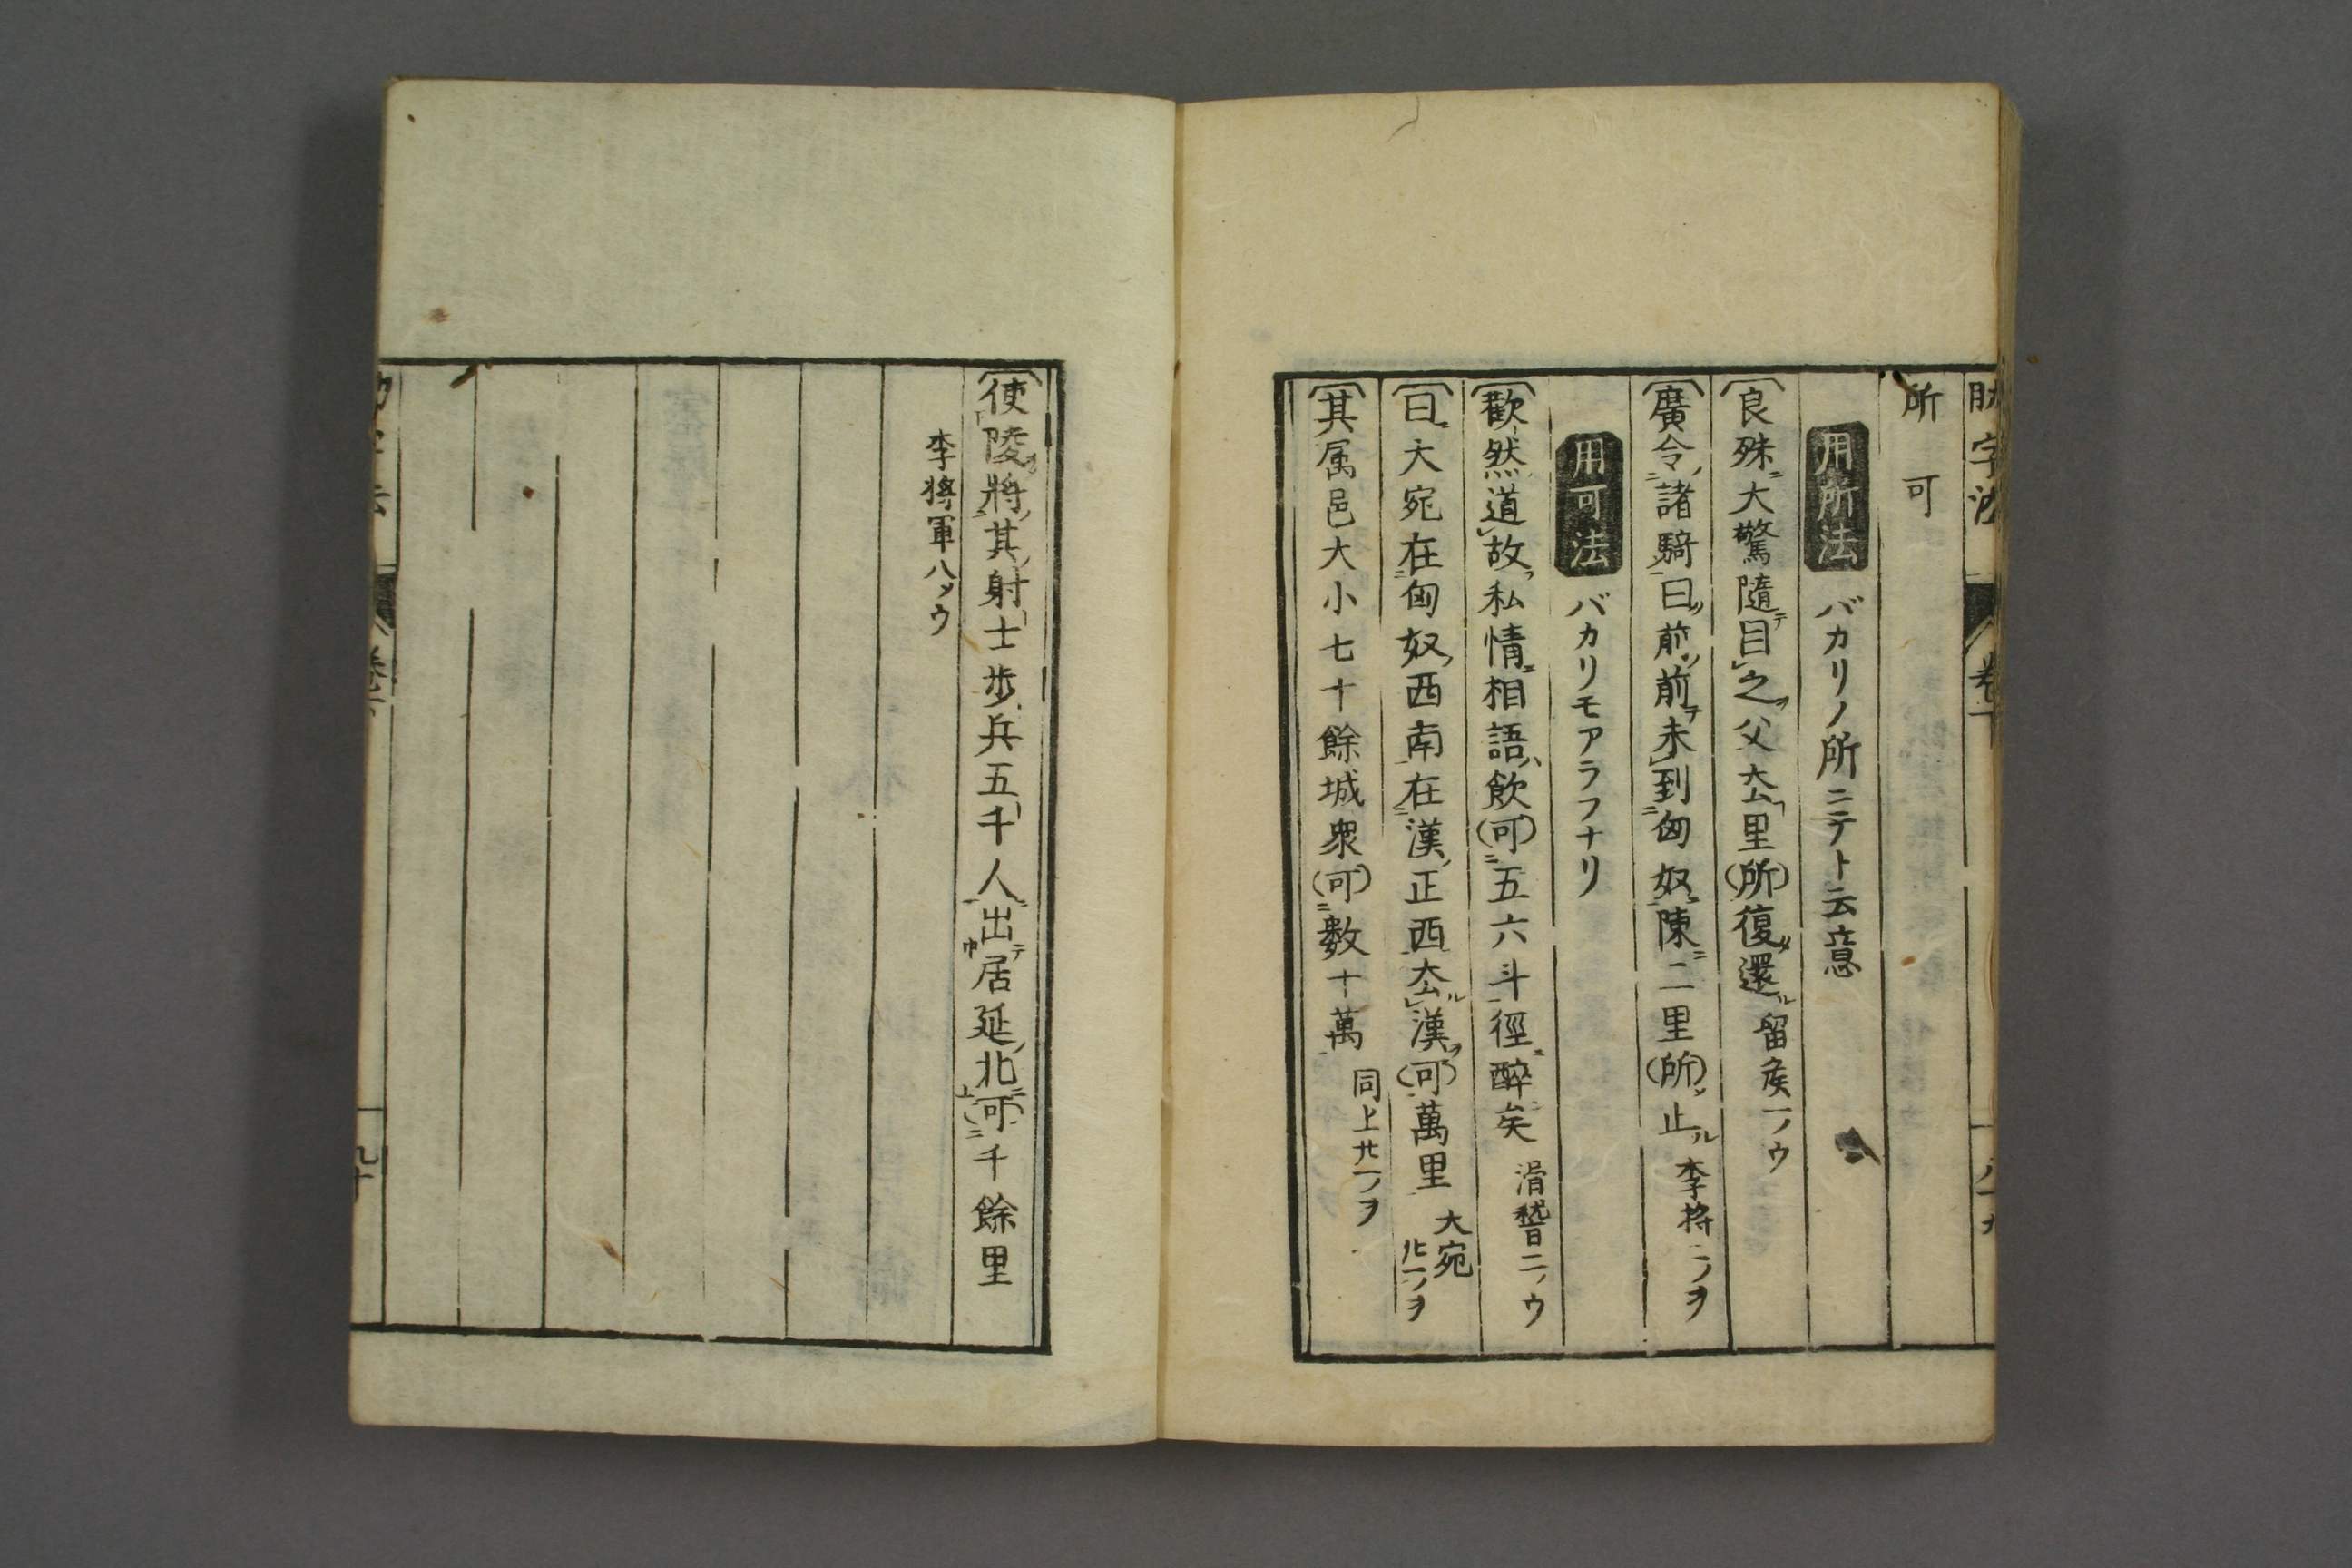 助字法 卷下 八十九
所 可
用所法 バカリノ所ニテト云意
良殊大驚隨目之父去里所復還 留矦一ノウ
廣令諸騎曰前前未到匈奴陳二里所止 李将二ノヲ
用可法 バカリモアラフナリ
歡然道故私情相語飲可五六斗徑醉矣 滑稽二ノウ
曰大宛在匈奴西南在漢正西去漢可萬里 大宛廿一ノヲ
其属邑大小七十餘城衆可數十萬 同上廿一ノヲ
使陵將其射士歩兵五千人出居延北可千餘里
李将軍八ノウ
九十